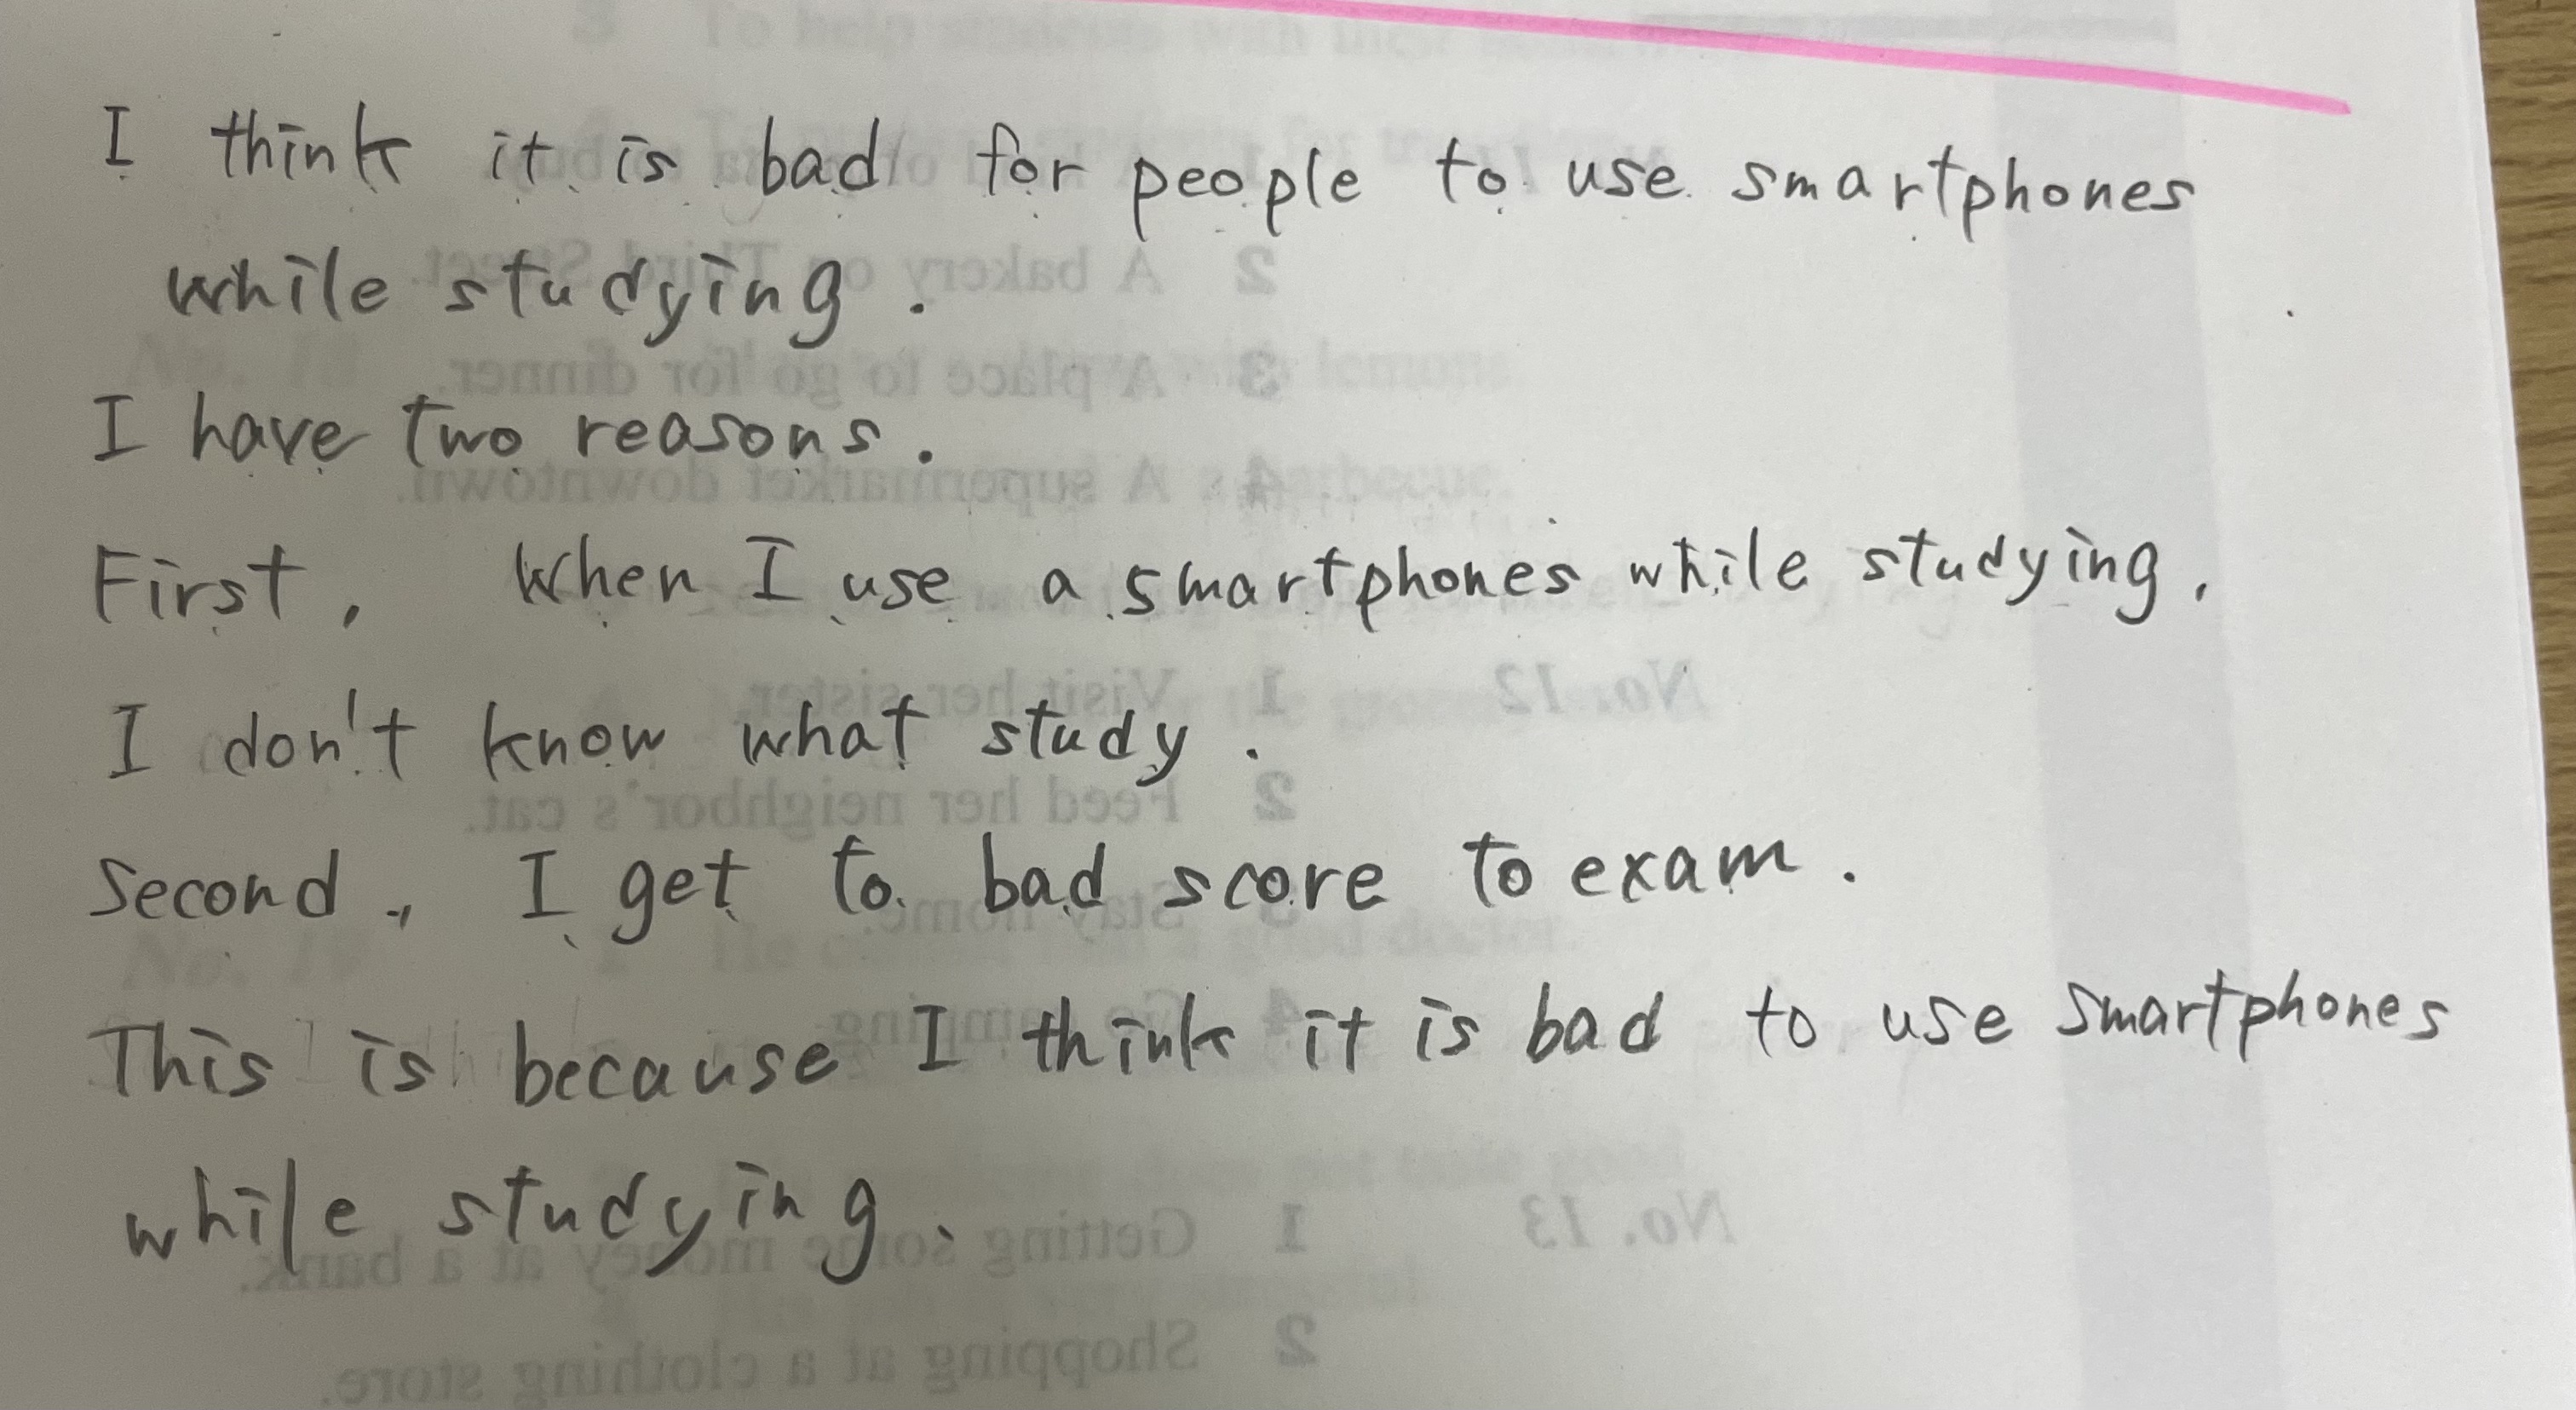 I think it is bad for people to use smartphones
while studying.
I have two reasons.
First, When I use a smartphones while studying,
I don't know what study.
Second, I get to bad score to exam.
This is because I think it is bad to use smartphones
while studying.